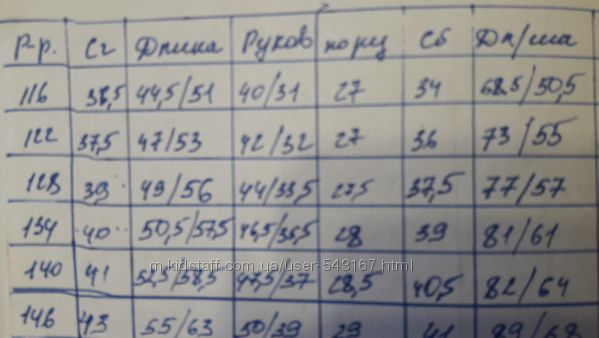 Р-р. Сг Длина Рукав по рц Сб Дл/ша
116 36,5 44,5/51 40/31 27 34 68.5/50,5
122 37,5 47/53 42/32 27 36 73/55
128 39 49/56 44/33,5 27,5 37,5 77/57
134 40 50,5/57,5 46,5/35,5 28 39 81/61
140 41 52,5/58,5 47,5/37 28,5 40,5 82/64
146 43 55/63 50/39 29 41 89/68
m.kidstaff.com.ua/user-543167.html